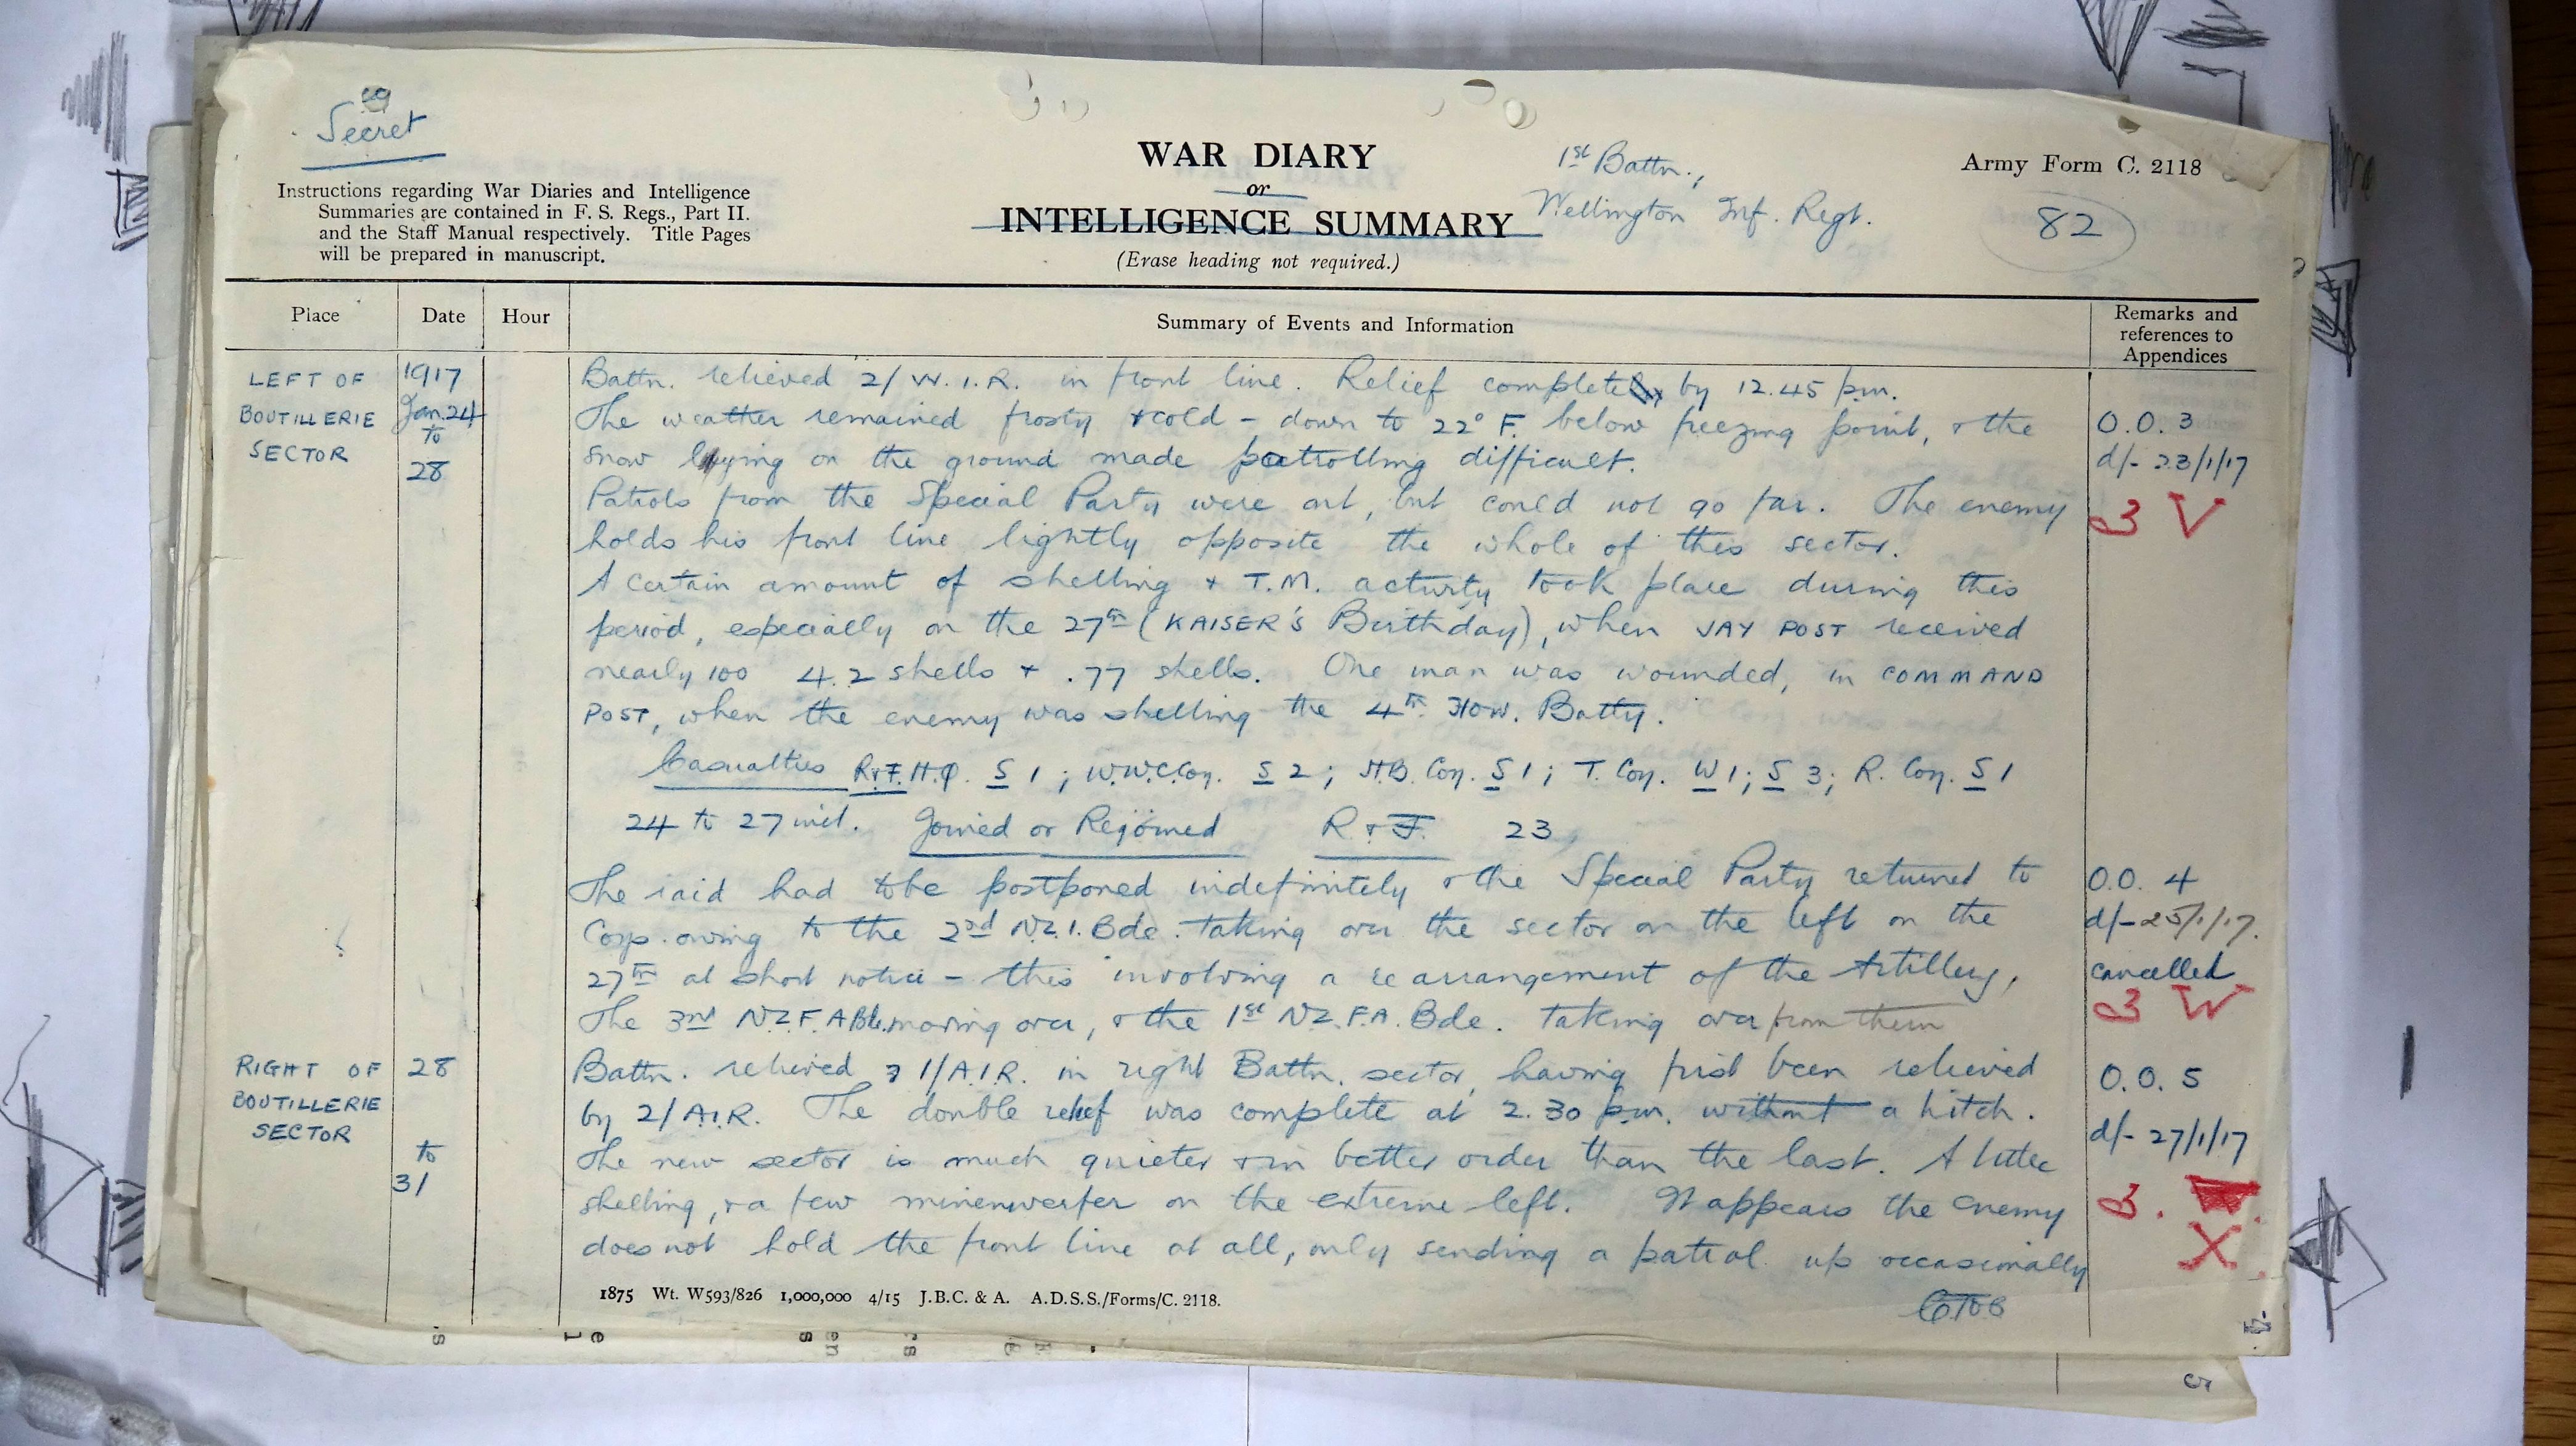 Secret
WAR DIARY
or
INTELLIGENCE SUMMARY
(Erase heading not required.)
1st Battn.,
Wellington Inf. Regt.
Army Form C. 2118
82
Instructions regarding War Diaries and Intelligence
Summaries are contained in F. S. Regs., Part II.
and the Staff Manual respectively. Title Pages
will be prepared in manuscript.
Place
Date
Hour
Summary of Events and Information
Remarks and
references to
Appendices
LEFT OF
BOUTILLERIE
SECTOR
1917
Jan. 24
to
28
Battn. relieved 2/ W.I.R. in front line. Relief complete by 12.45 p.m.
The weather remained frosty & cold – down to 22° F. below freezing point, & the
snow lying on the ground made patrolling difficult.
Patrols from the Special Party were out, but could not go far. The enemy
holds his front line lightly opposite the whole of this sector.
A certain amount of shelling & T.M. activity took place during this
period, especially on the 27th (KAISER'S Birthday), when JAY POST received
nearly 100 4.2 shells & .77 shells. One man was wounded, in COMMAND
POST, when the enemy was shelling the 4th How. Batty.
Casualties R&F. H.Q. S 1; W.W.C. Coy. S 2; H.B. Coy. S 1; T. Coy. W 1; S 3; R. Coy. S 1
24 to 27 incl. Joined or Rejoined R & F. 23
The raid had to be postponed indefinitely & the Special Party returned to
Coys. owing to the 2nd N.Z.I. Bde. taking over the sector on the left on the
27th at short notice – this involving a rearrangement of the Artillery,
The 3rd NZ.F.A Bde. moving over, & the 1st NZ.F.A. Bde. taking over from them
O.O. 3
d/- 23/1/17
3 V
O.O. 4
d/- 25/1/17.
cancelled
3 W
RIGHT OF
BOUTILLERIE
SECTOR
28
to
31
Battn. relieved 1/A.I.R. in right Battn. sector, having first been relieved
by 2/ A.I.R. The double relief was complete at 2.30 p.m. without a hitch.
The new sector is much quieter & in better order than the last. A little
shelling, & a few minenwerfer on the extreme left. It appears the enemy
does not hold the front line at all, only sending a patrol up occasionally
O.O. 5
d/- 27/1/17
3.
X
1875 Wt. W593/826 1,000,000 4/15 J.B.C. & A. A.D.S.S./Forms/C. 2118.